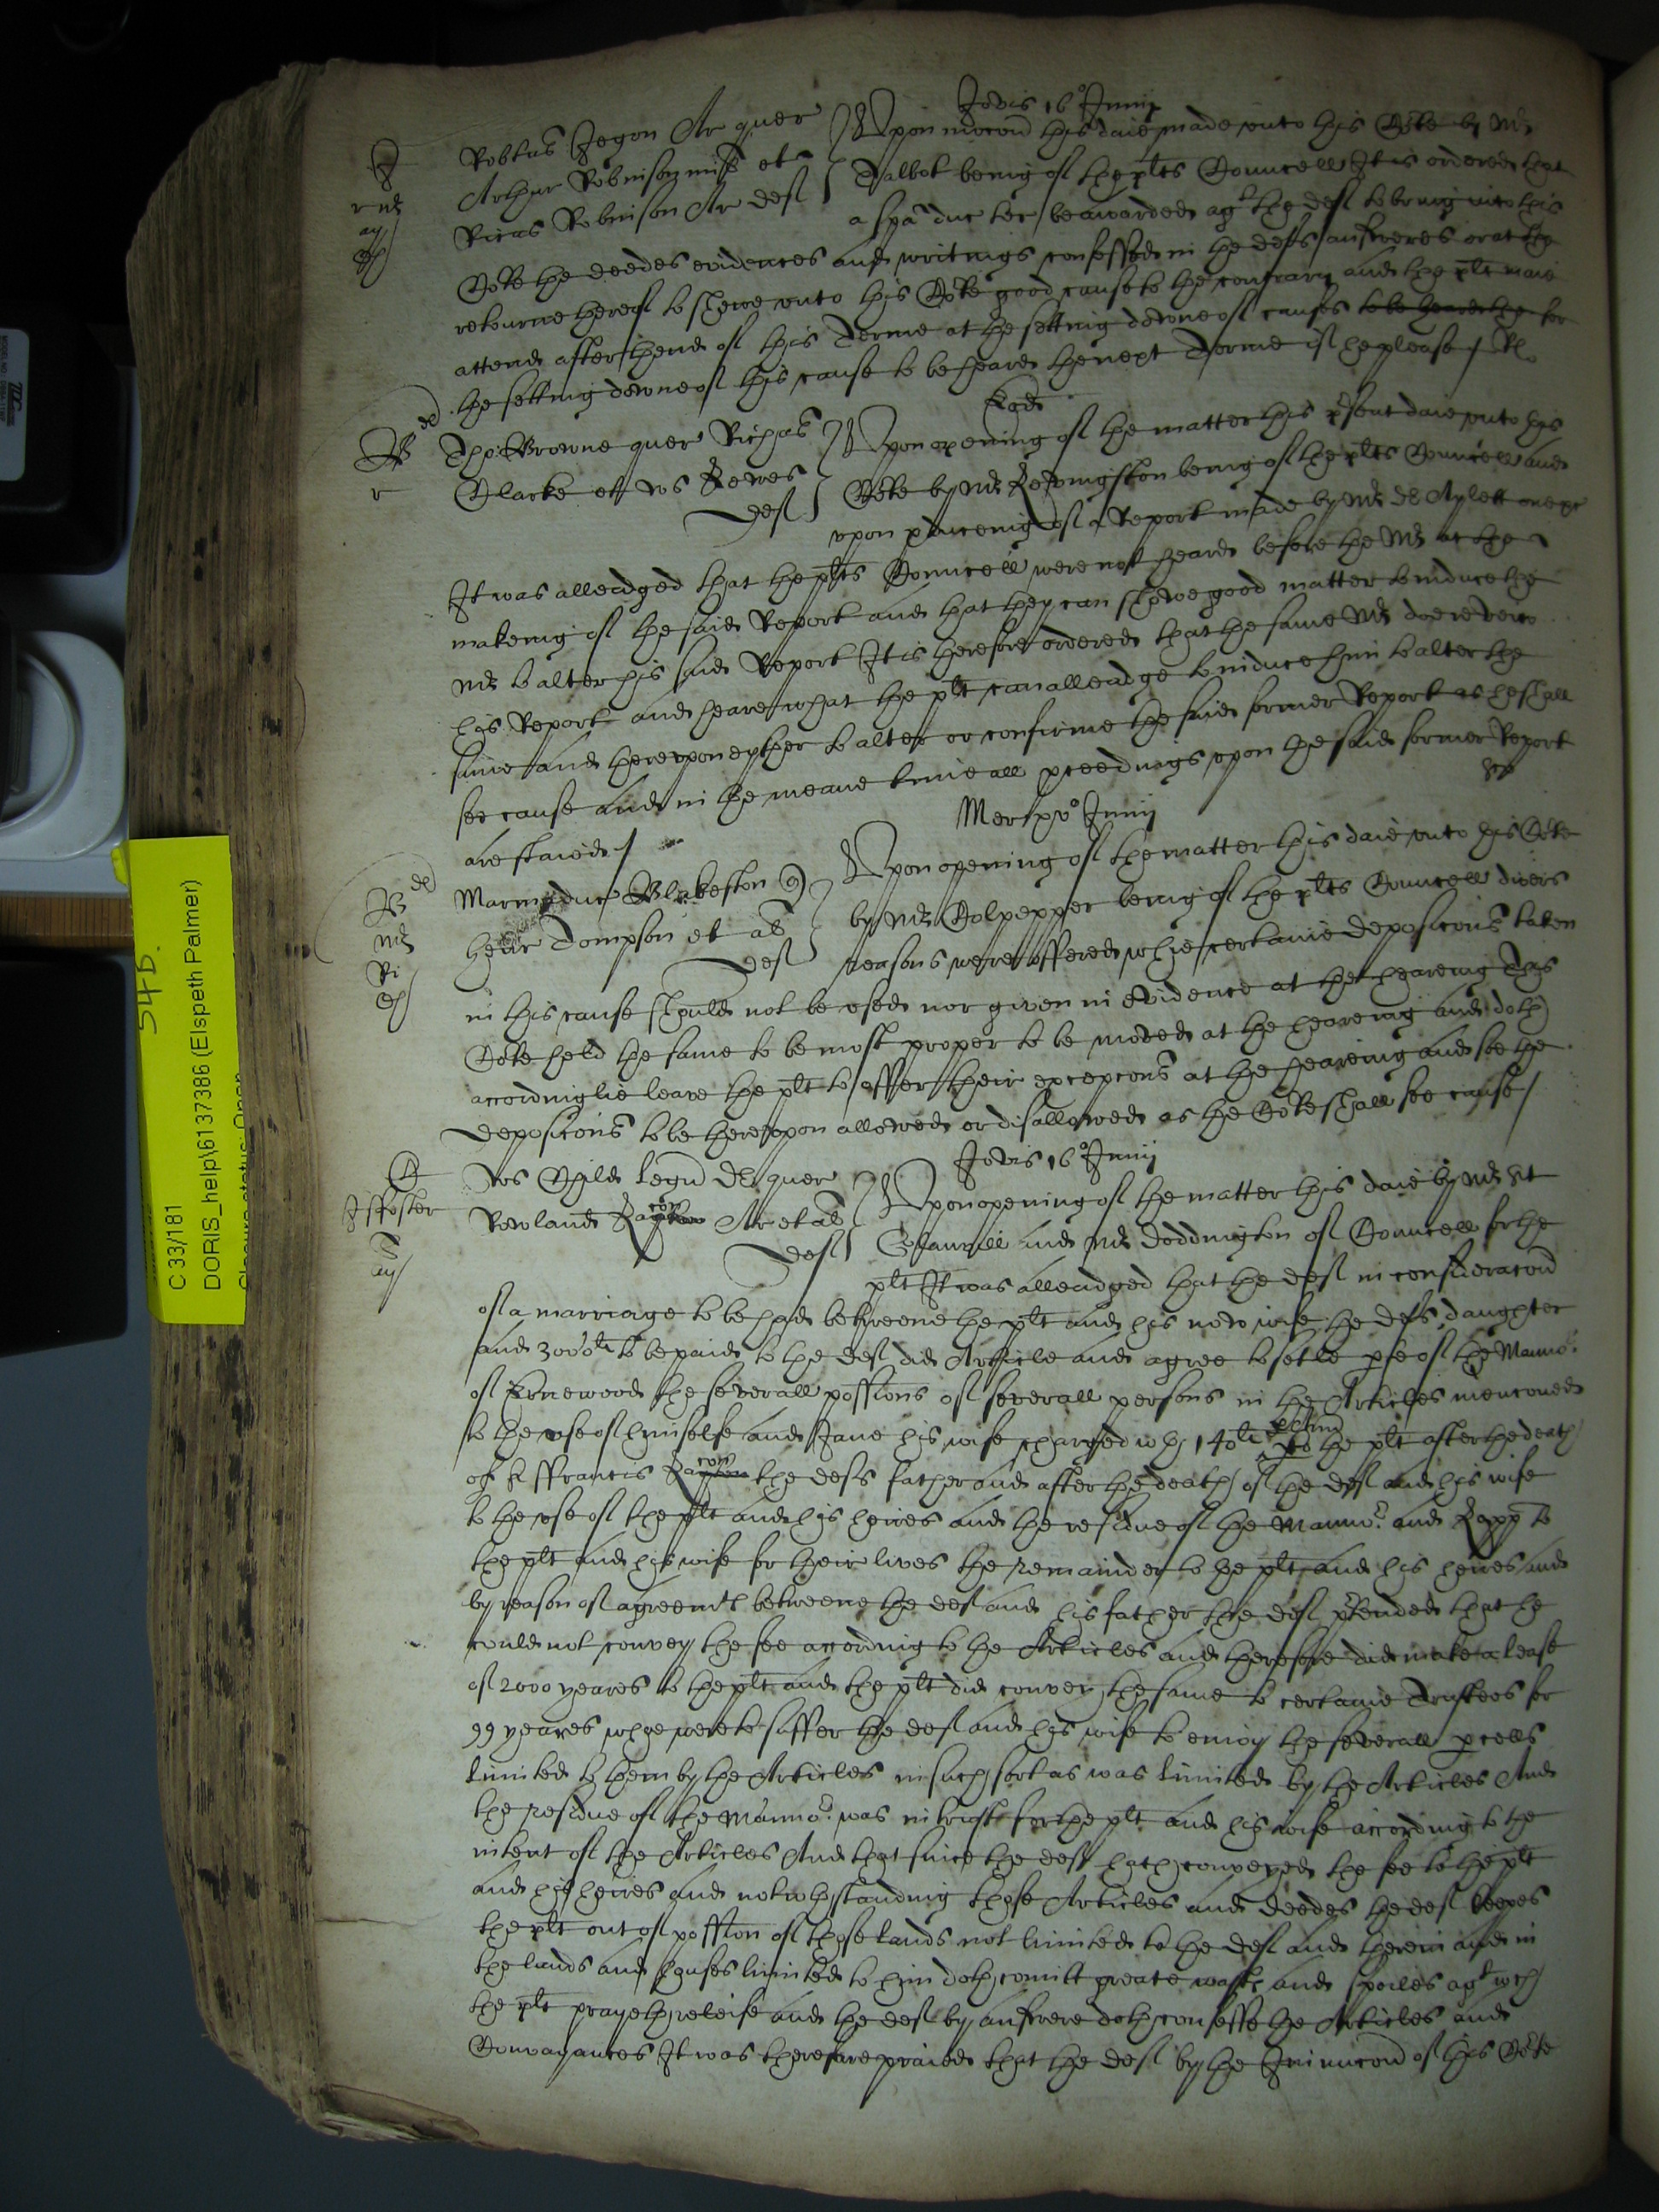 Jovis 16° Junij
Robtus Jegon Ar quer
Arthur Robinson miłs et
Ricus Robinson Ar def
Upon mocon this daie made unto this Co:te by Mr
Talbot being of the plts Councell It is ordered that
a spa duc tec be awarded agt the def to bring into this
Co:te the deedes evidences and writings confessed in the defts answeres or at the
retourne thereof to shewe unto this Co:te good cause to the contrary and the plt maie
attend after thend of this Terme at the setting downe of causes to be heard the for
the setting downe of this cause to be heard the next Terme if he please / Rl
Eod
Tho: Browne quer Richas
Clarke et Jo:s Lewes
def
Upon opening of the matter this pesent daie unto this
Co:te by Mr Lewingston being of the plts Councell and
upon pducening of a Report made by Mr Dr Aylett one &c
It was alleadged that the plts Councell were not heard before the Mr at the
makeing of the said Report and that they can shewe good matter to induce the
Mr to alter his said Report It is therefore ordered that the same Mr doe reveiw
his Report and heare what the plt can alleadge to induce him to alter the
same and thereupon eyther to alter or confirme the said former Report as he shall
see cause and in the meane time all pceedings upon the said former Report
are staied /
Mer xv° Junij
Marmaduc Blakeston q
Henr Tompson et al
def
Upon opening of the matter this daie unto this Co:te
by Mr Colpepper being of the plts Councell divers
reasons were offered whie certaine deposicons taken
in this cause should not be used nor given in evidence at the heareing This
Co:te held the same to be most proper to be moved at the heareing and doth
accordinglie leave the plt to offer their excepcons at the heareing and soe the
deposicons to be thereupon allowed or disallowed as the Co:te shall see cause /
Jovis 16° Junij
Jos Child legu Dr quer
Rowland Ar et al
def
Upon opening of the matter this daie by Mr St
Glanvill and Mr Doddington of Councell for the
plt It was alleadged that the def in consideracon
of a marriage to be had betweene the plt and his now wife the defts daughter
and 300li to be paid to the def did Article and agree to setle pte of the Manno:r
of Ernewood the severall possions of severall persons in the Articles menconed
to the use of himselfe and Jane his wife charged wth 140li to the plt after the death
of Ffrancis the defts father and after the death of the def and his wife
to the use of the plt and his heires and the residue of the Manno:r and to
the plt and his wife for their lives the remainder to the plt and his heires and
by reason of agreemt betweene the def and his father the def ptended that he
could not convey the fee according to the Articles and therefore did make a lease
of 2000 yeares to the plt and the plt did convey the same to certaine Trustees for
99 yeares whoe were to suffer the def and his wife to enioy the severall pcells
limited to them by the Articles in such sort as was limited by the Articles And
the residue of the Manno:r was in trust for the plt and his wife according to the
intent of the Articles And that since the def hath conveyed the fee to the plt
and his heires and notwthstanding those Articles and deedes the def keepes
the plt out of possion of those lands not limited to the def and therein and in
the lands and houses limited to him doth comitt greate wast and spoiles agt wch
the plt prayeth releife and the def by answere doth confesse the Articles and
Convayances It was therefore praied that the def by the Iniuncon of this Co:te
54D.
C 33/181
DORIS_help\6137386 (Elspeth Palmer)